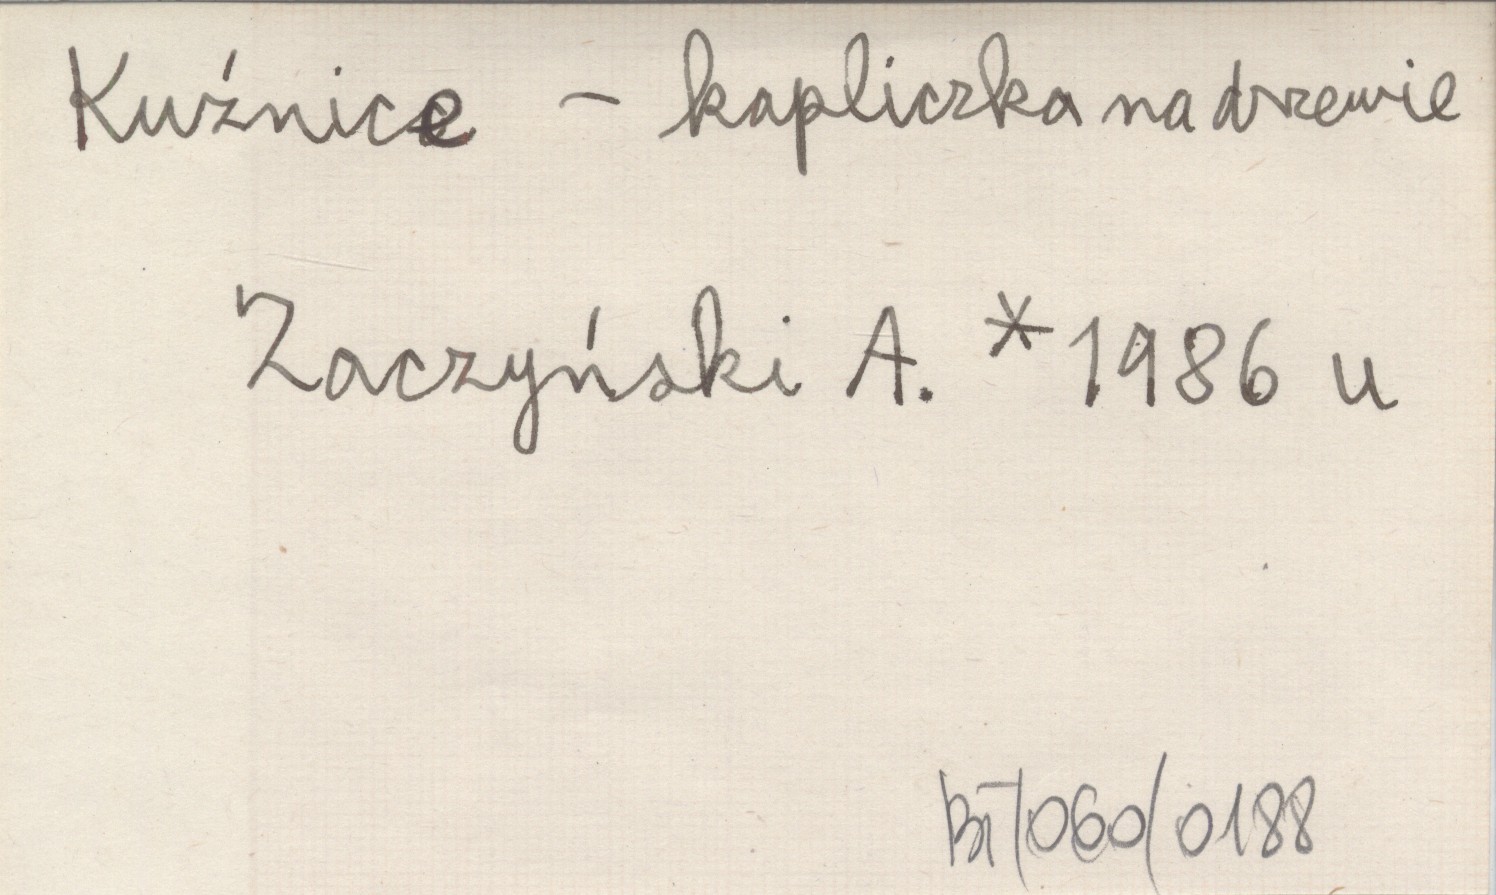 Kuźnice - kapliczka na drzewie
Zaczyński A. * 1986 u
/060/0188